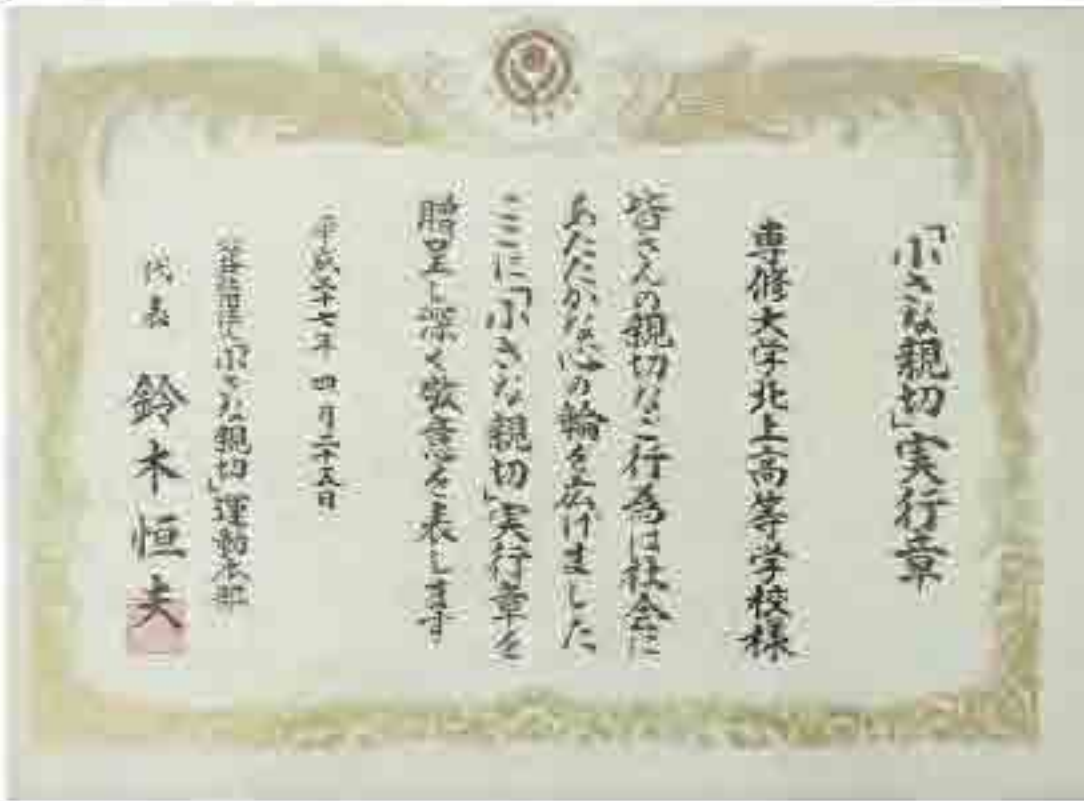 「小さな親切」実行章
専修大学北上高等学校様
皆さんの親切なご行為は社会に
あたたかな心の輪を広げました
ここに「小さな親切」実行章を
贈呈し深く敬意を表します
平成二十七年 四月二十五日
「小さな親切」運動本部
代表 鈴木恒夫